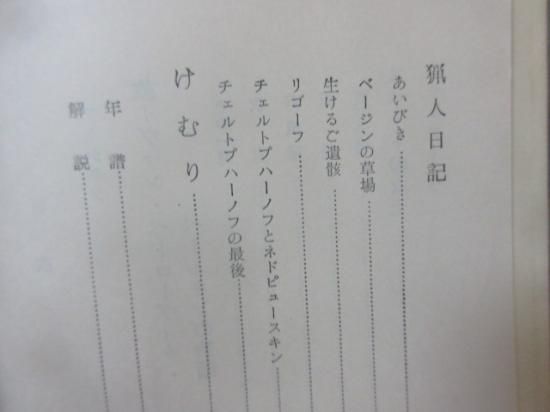 猟人日記
あいびき
ベージンの草場
生けるご遺骸
リゴーフ
チェルトプハーノフとネドピュースキン
チェルトプハーノフの最後
けむり
年譜
解説